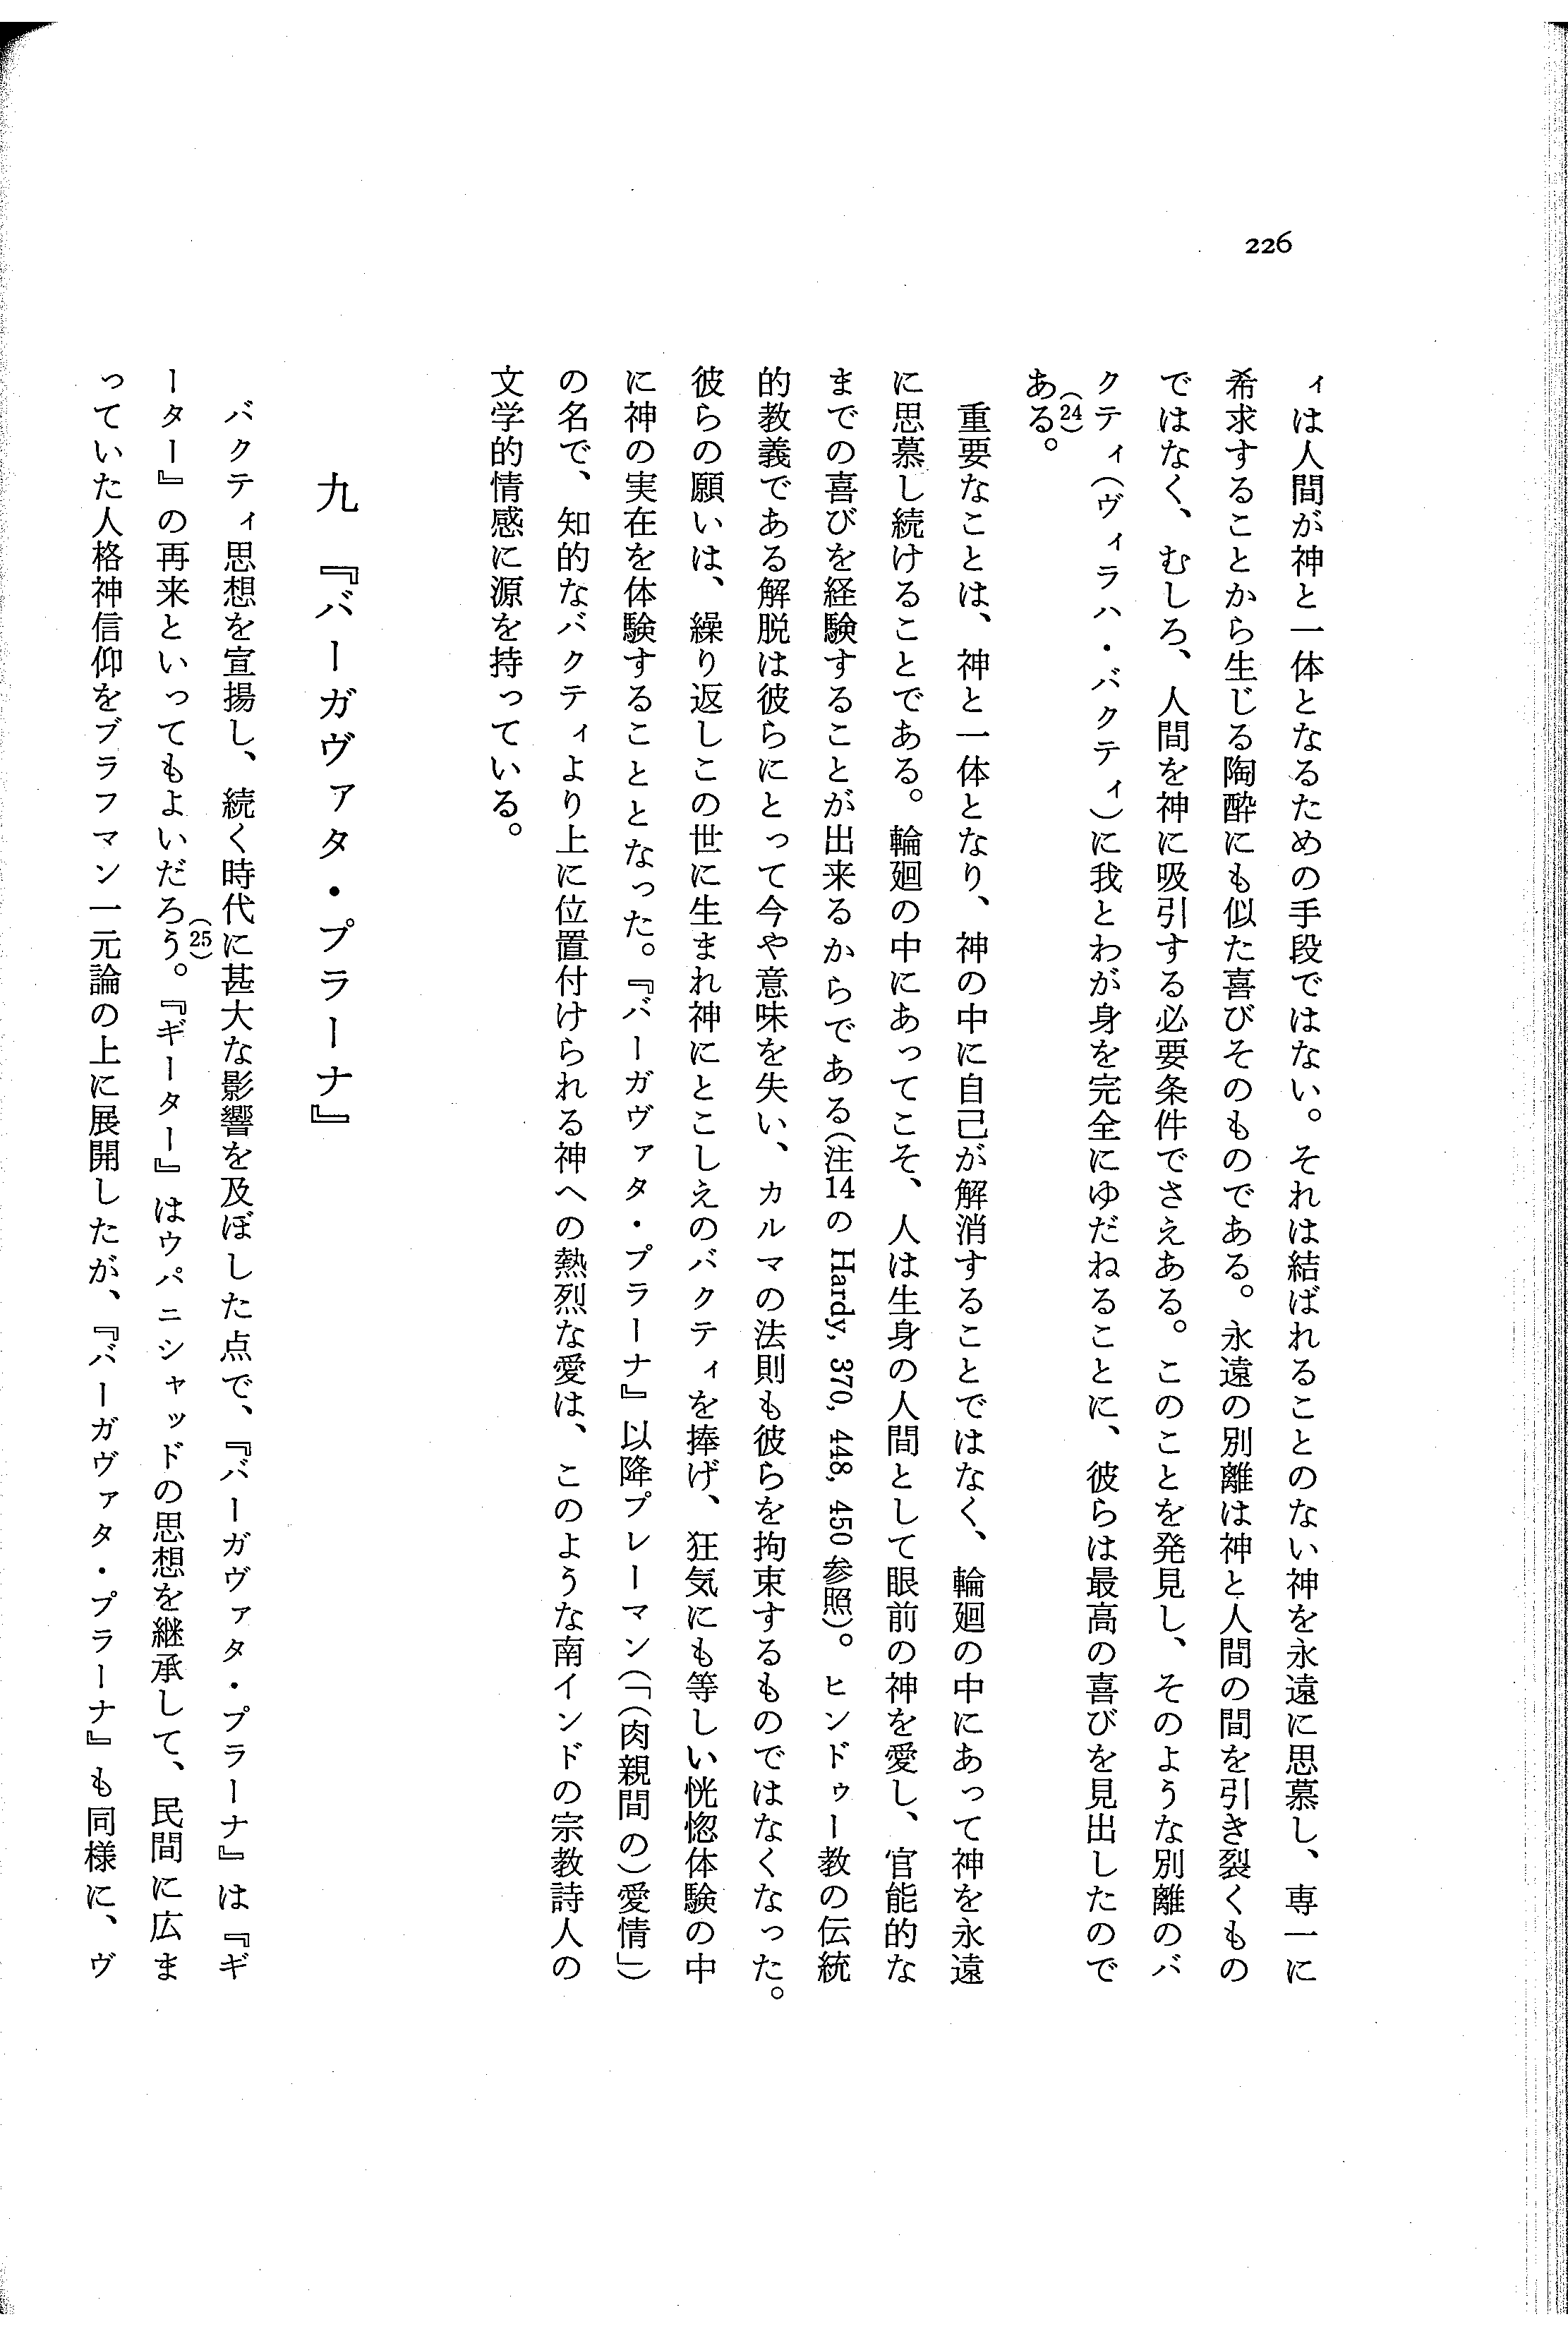 226
ィは人間が神と一体となるための手段ではない。それは結ばれることのない神を永遠に思慕し、専一に
希求することから生じる陶酔にも似た喜びそのものである。永遠の別離は神と人間の間を引き裂くもの
ではなく、むしろ、人間を神に吸引する必要条件でさえある。このことを発見し、そのような別離のバ
クティ(ヴィラハ・バクティ)に我とわが身を完全にゆだねることに、彼らは最高の喜びを見出したので
ある。(24)
重要なことは、神と一体となり、神の中に自己が解消することではなく、輪廻の中にあって神を永遠
に思慕し続けることである。輪廻の中にあってこそ、人は生身の人間として眼前の神を愛し、官能的な
までの喜びを経験することが出来るからである(注14の Hardy, 370, 448, 450 参照)。ヒンドゥー教の伝統
的教義である解脱は彼らにとって今や意味を失い、カルマの法則も彼らを拘束するものではなくなった。
彼らの願いは、繰り返しこの世に生まれ神にとこしえのバクティを捧げ、狂気にも等しい恍惚体験の中
に神の実在を体験することとなった。『バーガヴァタ・プラーナ』以降プレーマン(「(肉親間の)愛情」)
の名で、知的なバクティより上に位置付けられる神への熱烈な愛は、このような南インドの宗教詩人の
文学的情感に源を持っている。
九 『バーガヴァタ・プラーナ』
バクティ思想を宣揚し、続く時代に甚大な影響を及ぼした点で、『バーガヴァタ・プラーナ』は『ギ
ーター』の再来といってもよいだろう。(25)『ギーター』はウパニシャッドの思想を継承して、民間に広ま
っていた人格神信仰をブラフマン一元論の上に展開したが、『バーガヴァタ・プラーナ』も同様に、ヴ